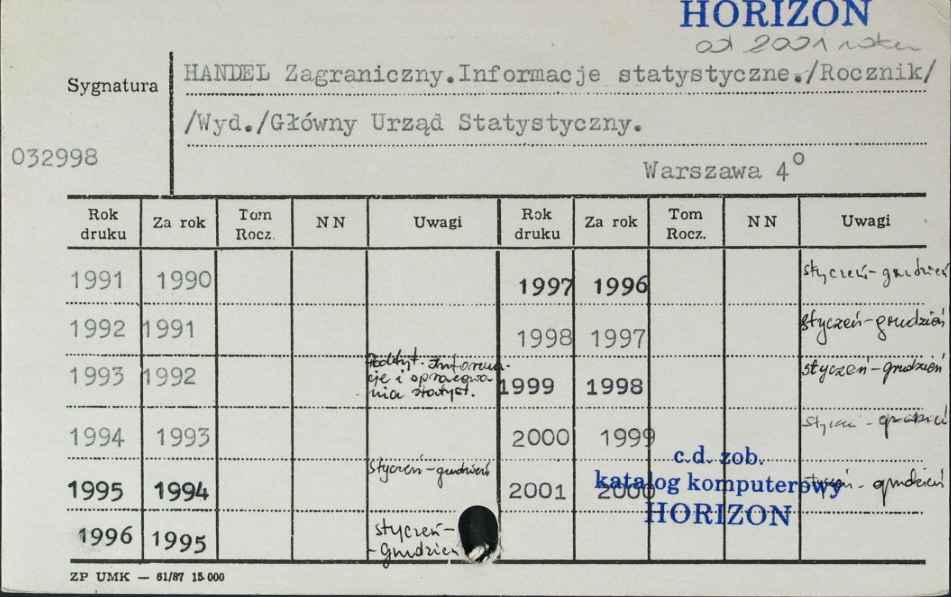 HORIZON
od 2001 roku
Sygnatura
HANDEL Zagraniczny.Informacje statystyczne./Rocznik/
/Wyd./Główny Urząd Statystyczny.
032998
Warszawa 4°
Rok druku Za rok Tom Rocz. NN Uwagi Rok druku Za rok Tom Rocz. NN Uwagi
1991 1990 1997 1996 styczeń-grudzień
1992 1991 1998 1997 styczeń-grudzień
1993 1992 Podtyt. Informa-
cje i opracowa-
nia statyst. 1999 1998 styczeń-grudzień
1994 1993 2000 1999 styczeń-grudzień
1995 1994 styczeń-grudzień 2001 2000 styczeń-grudzień
1996 1995 styczeń-
-grudzień
c.d. zob.
katalog komputerowy
HORIZON
ZP UMK — 61/87 15.000